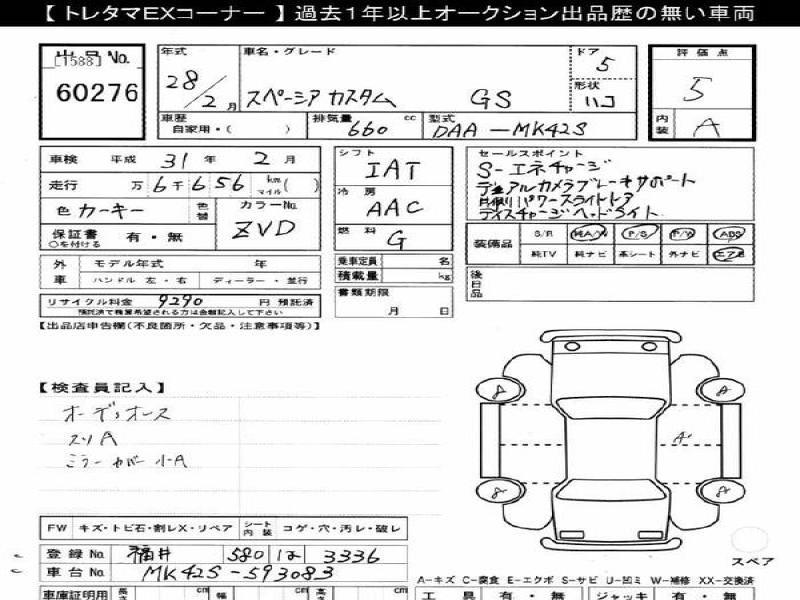 【 トレタマEXコーナー 】過去1年以上オークション出品歴の無い車両
出品 No.
[1588]
60276
年式
28/2月
車名・グレード
スペーシア カスタム GS
ドア
5
形状
ハコ
評価点
5
内装
A
車歴
自家用・( )
排気量
660 cc
型式
DAA-MK42S
車検 平成 31 年 2 月
走行 万 6 千 656 km マイル ( )
色 カーキー
色替
カラーNo.
ZVD
保証書 有・無
○を付ける
シフト
IAT
冷房
AAC
燃料
G
セールスポイント
S-エネチャージ
デュアルカメラブレーキサポート
片側パワースライドドア
ディスチャージヘッドライト
装備品
S/R
純A/W
P/S
P/W
ABS
純TV
純ナビ
革シート
外ナビ
エアB
外車
モデル年式 年
ハンドル 左・右
ディーラー・並行
乗車定員 名
積載量 kg
後日品
リサイクル料金 9290 円 預託済
預託済で精算希望される方は金額記入して下さい
書類期限
月 日
【出品店申告欄(不良箇所・欠品・注意事項等)】
【検査員記入】
オーディオレス
スリA
ミラーカバー小A
A
A
A
A
A
FW キズ・トビ石・割レX・リペア
シート内装 コゲ・穴・汚レ・破レ
登録 No. 福井 580 は 3336
車台 No. MK42S-593083
スペア
A-キズ C-腐食 E-エクボ S-サビ U-凹ミ W-補修 XX-交換済
車庫証明用 長さ cm 幅 cm 高さ cm
工具 有・無 ジャッキ 有・無